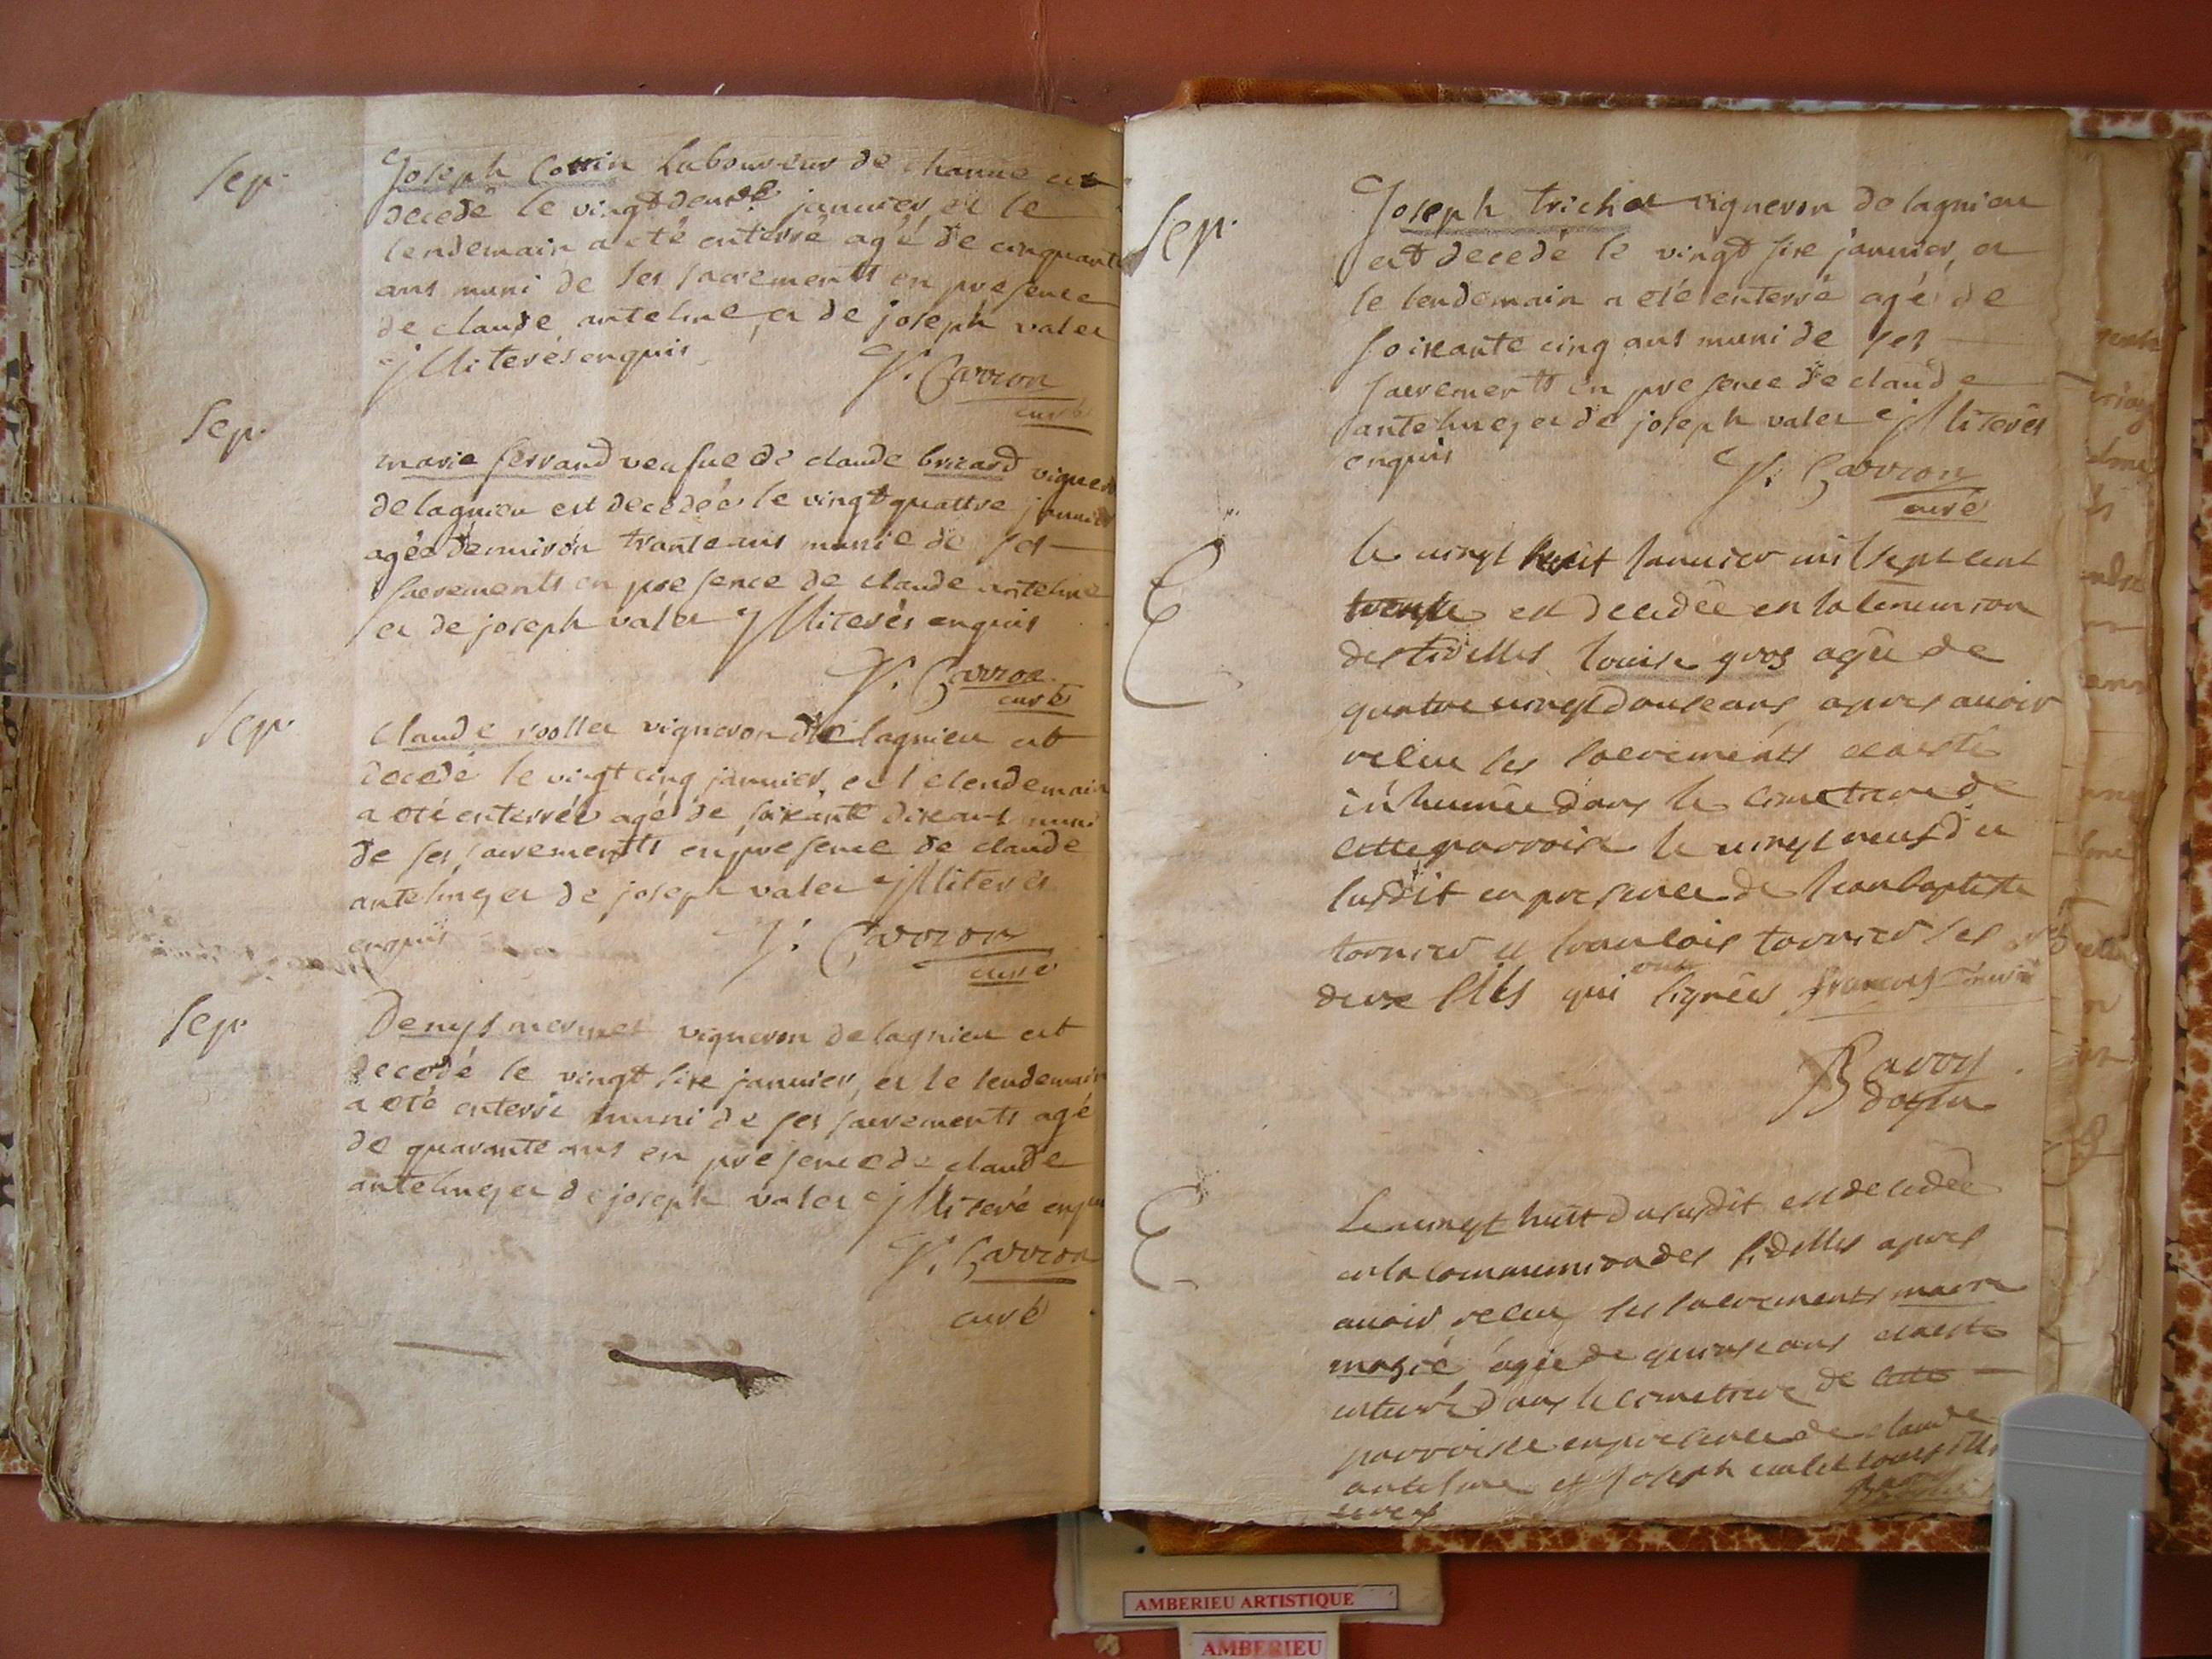 Sep.
Joseph Cottin Laboureur de chanue est
decedé le vingt deuxe janvier, et le
lendemain a eté enterré agé de cinquante
ans muni de ses sacrements en presence
de claude antelme, et de joseph valet
jlliterés enquis
J. Carron
curé
Sep.
marie ferrand veusue de claude bricard vigneron
de lagnieu est decedée le vingt quattre janvier
agée d'enuiron trante ans munie de ses
sacrements en presence de claude antelme
et de joseph valet jlliterés enquis
J. Carron
curé
Sep.
claude rollet vigneron de lagnieu est
decedé le vingt cinq janvier, et le lendemain
a eté enterrée agé de soixante dix ans muni
de ses sacrements en presence de claude
antelme, et de joseph valet jlliterés
enquis
J. Carron
curé
Sep.
Denys mermet vigneron de lagnieu est
decedé le vingt sixe janvier, et le lendemain
a eté enterré muni de ses sacrements agé
de quarante ans en presence de claude
antelme, et de joseph valet jlliteré enquis
J. Carron
curé
Sep.
Joseph trichet vigneron de lagnieu
est decedé le vingt sixe janvier, et
le lendemain a eté enterré agé de
soixante cinq ans muni de ses
sacrements en presence de claude
antelme, et de joseph valet jlliterés
enquis
J. Carron
curé
le uingt huit Januier mil sept cent
trente est decedée en la comunion
des fidelles louise gros agée de
quatre uingt douse ans apres auoir
receu les sacrements et a esté
inhumée dans le cimetiere de
cette parroisse le uingt neuf du
susdit en presence de Jean baptiste
tornier et francois tornier ses
deux fils qui ont signées francois
Bavoy
doyen
Le uingt huit du susdit est decedée
en la communion des fidelles apres
auoir receu les sacrements marie
agée de quinse ans et a esté
enterré dans le cimetiere de cette
parroisse en presence de claude
antelme et Joseph ualet tous illi
terés
AMBERIEU ARTISTIQUE
AMBERIEU